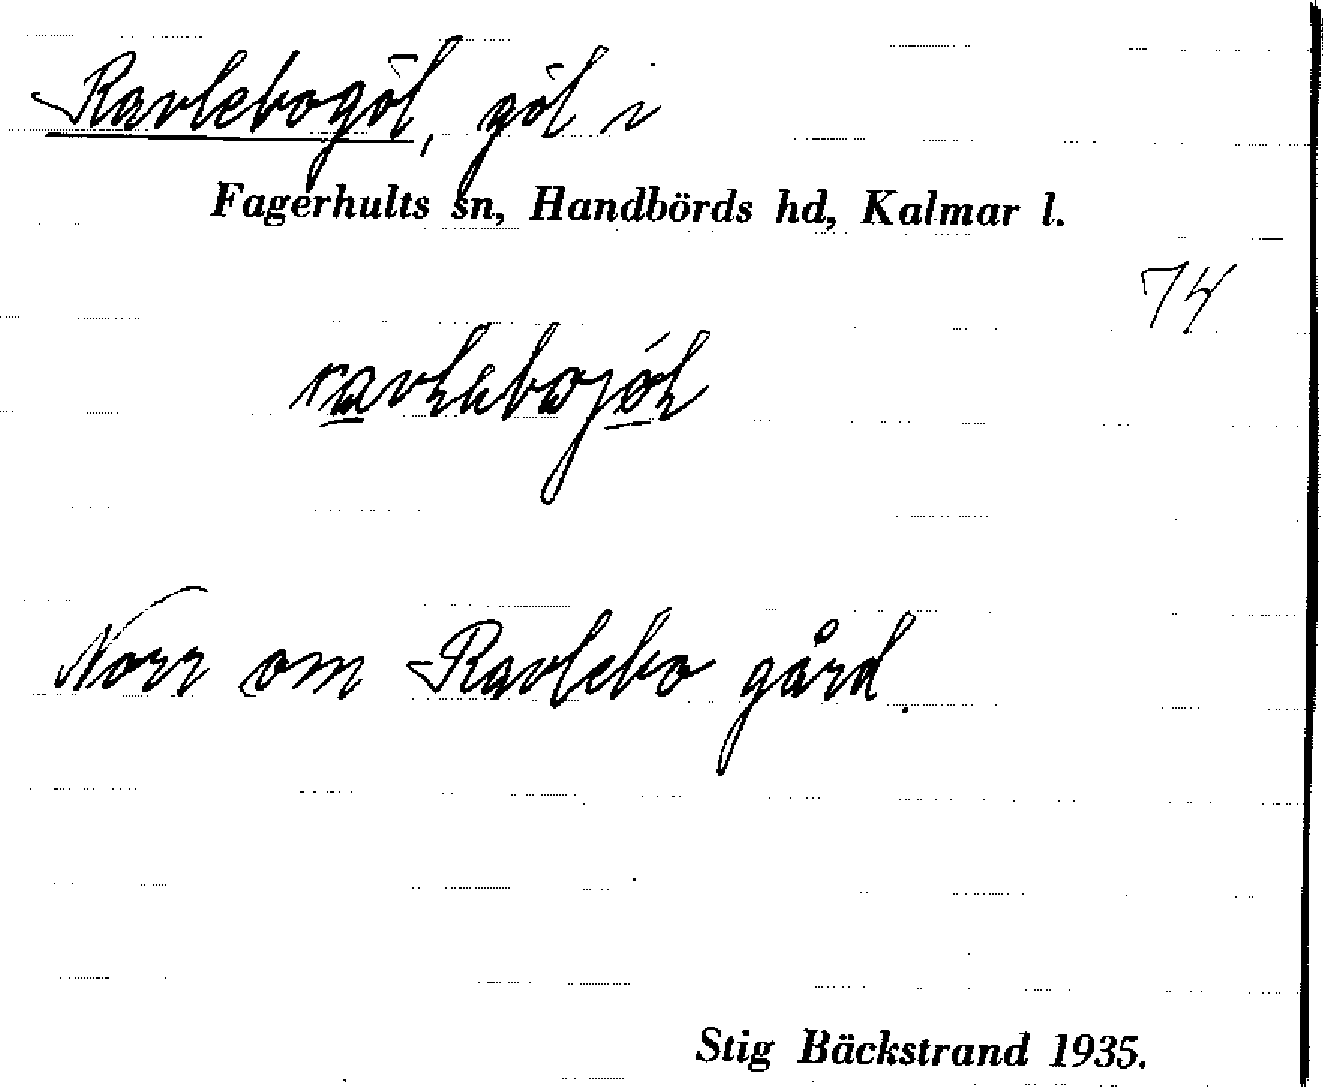 Ravlebogöl, göl i
Fagerhults sn, Handbörds hd, Kalmar l.
74
Norr om Ravlebo gård.
Stig Bäckstrand 1935.